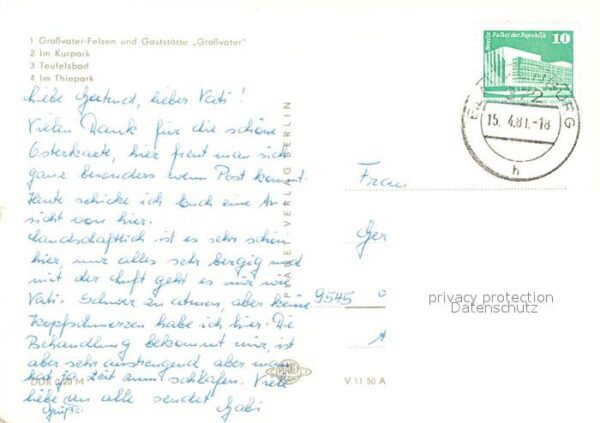 1 Großvater-Felsen und Gaststätte „Großvater"
2 Im Kurpark
3 Teufelsbad
4 Im Thiepark
Liebe Gertrud, lieber Vati!
Vielen Dank für die schöne
Osterkarte, hier freut man sich
ganz besonders wenn Post kommt.
Heute schicke ich Euch eine An-
sicht von hier.
Landschaftlich ist es sehr schön
hier nur alles sehr bergig und
mit der Luft geht es mir wie
Vati. Schwer zu atmen, aber keine
Kopfschmerzen habe ich hier. Die
Behandlung bekommt mir, ist
aber sehr anstrengend, aber man
hat ja Zeit zum schlafen. Viele
liebe an alle sendet
Grüße Gabi
DDR 0,20 M
PLANET-VERLAG BERLIN
PLANET
V 11 50 A
Berlin Palast der Republik
10
DDR
15.4.81.-18
h
Frau
Ger
9545
privacy protection
Datenschutz